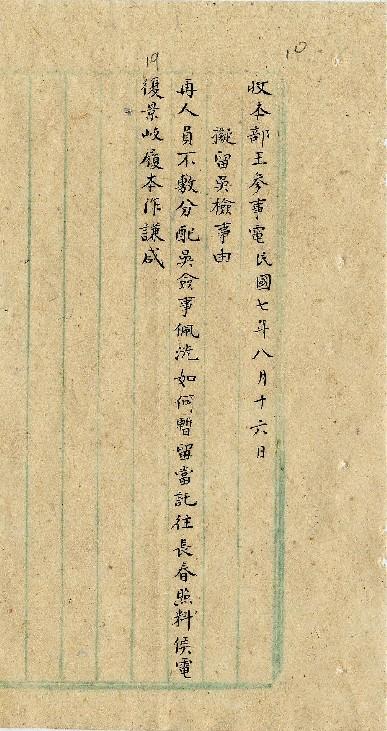 10
收本部王參事電民國七年八月十六日
擬留吳檢事由
再人員不敷分配吳僉事佩洸如何暫留當託往長春照料俟電
19
復景岐嶺本作謙咸